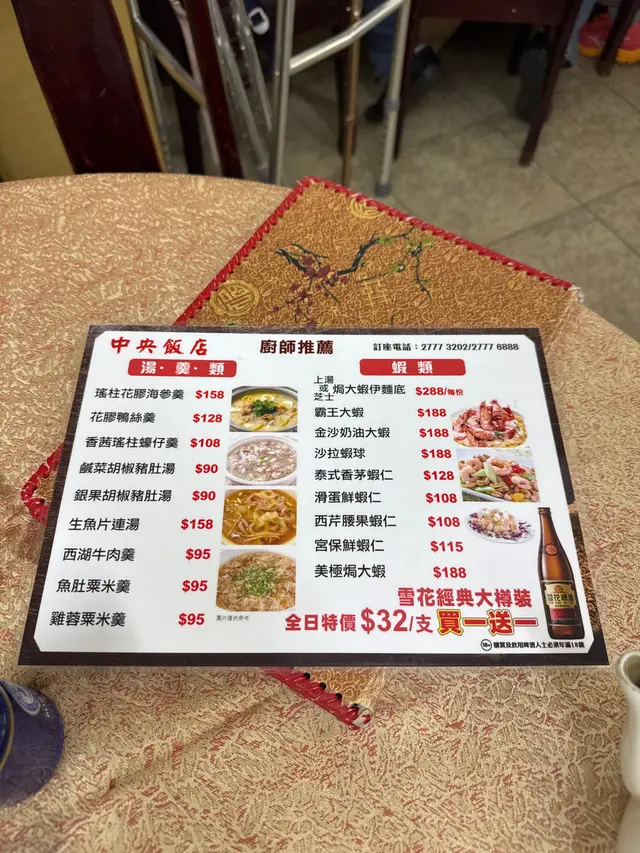 中央飯店
廚師推薦
訂座電話：2777 3202/2777 6888
湯·羹·類
瑤柱花膠海參羹 $158
花膠鴨絲羹 $128
香茜瑤柱蠔仔羹 $108
鹹菜胡椒豬肚湯 $90
銀果胡椒豬肚湯 $90
生魚片連湯 $158
西湖牛肉羹 $95
魚肚粟米羹 $95
雞蓉粟米羹 $95
圖片僅供參考
蝦類
上湯或芝士焗大蝦伊麵底 $288/每份
霸王大蝦 $188
金沙奶油大蝦 $188
沙拉蝦球 $188
泰式香茅蝦仁 $128
滑蛋鮮蝦仁 $108
西芹腰果蝦仁 $108
宮保鮮蝦仁 $115
美極焗大蝦 $188
雪花經典大樽裝
全日特價 $32/支 買一送一
雪花啤酒
18+ 購買及飲用啤酒人士必須年滿18歲